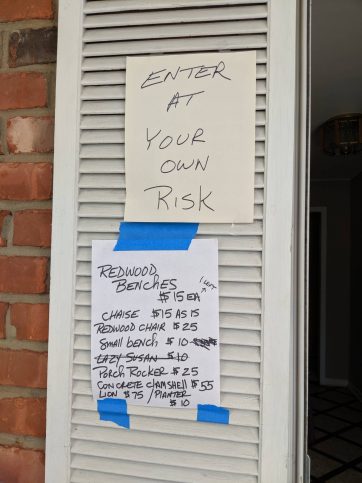 ENTER
AT
YOUR
OWN
RISK
REDWOOD
BENCHES
1 LEFT
$15 EA
CHAISE $15 AS IS
REDWOOD CHAIR $25
Small bench $10
LAZY SUSAN $10
PORCH ROCKER $25
CONCRETE CLAMSHELL $55
LION $75 / PLANTER
$10